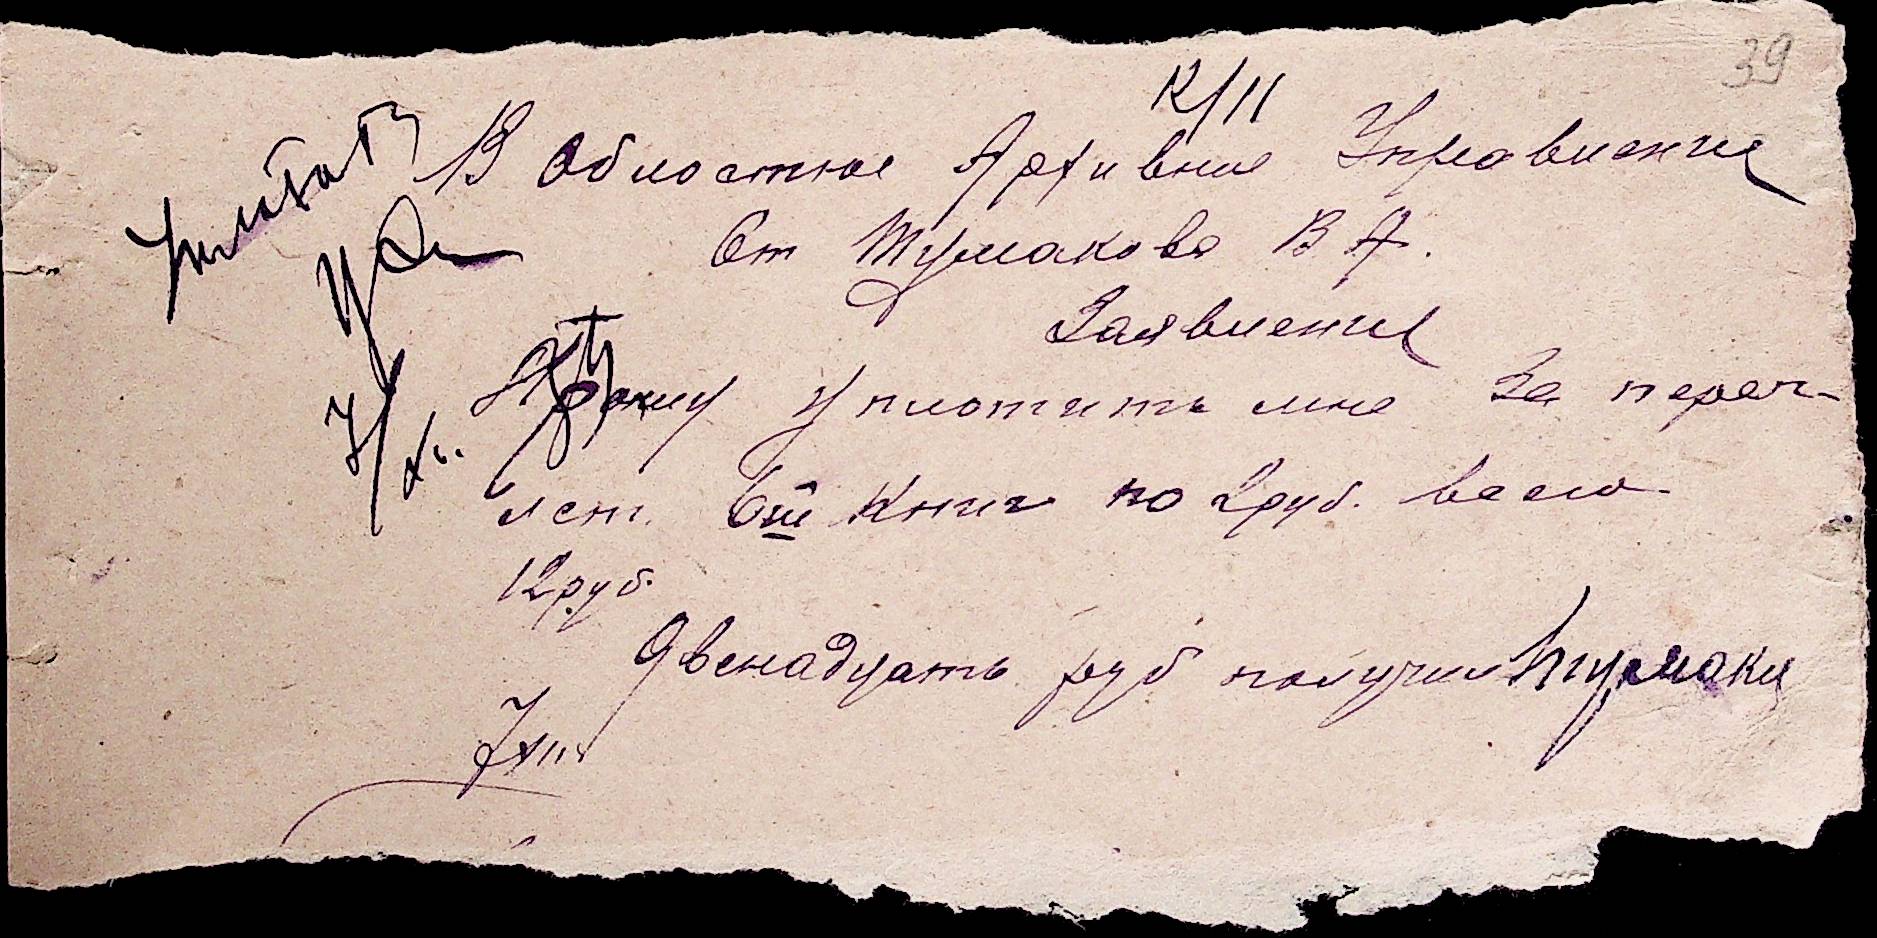 39
К/11
В Областное Архивное Управление
От Шумакова В А.
Заявление
Уплатить
7/XI.
Прошу уплотить мне за переп-
лет. 6ти книг по 2 руб. всего
12 руб.
Двенадцать руб получил Шумаков
7/XII